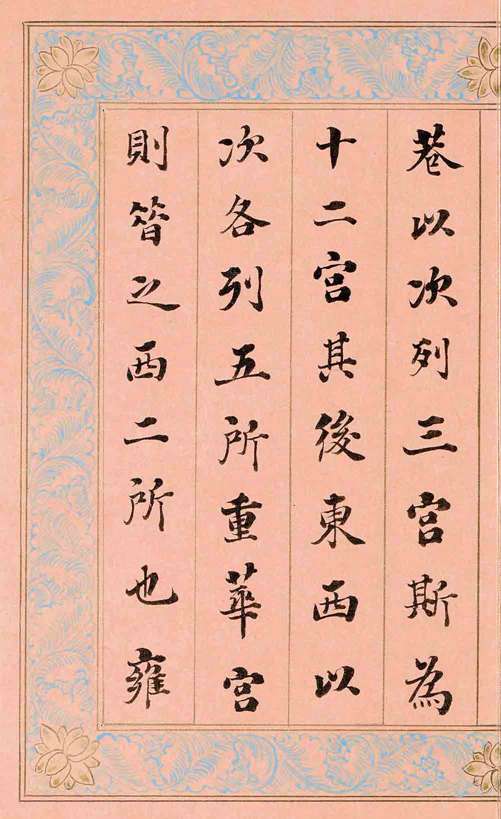 巷以次列三宮斯為
十二宮其後東西以
次各列五所重華宮
則㫺之西二所也雍